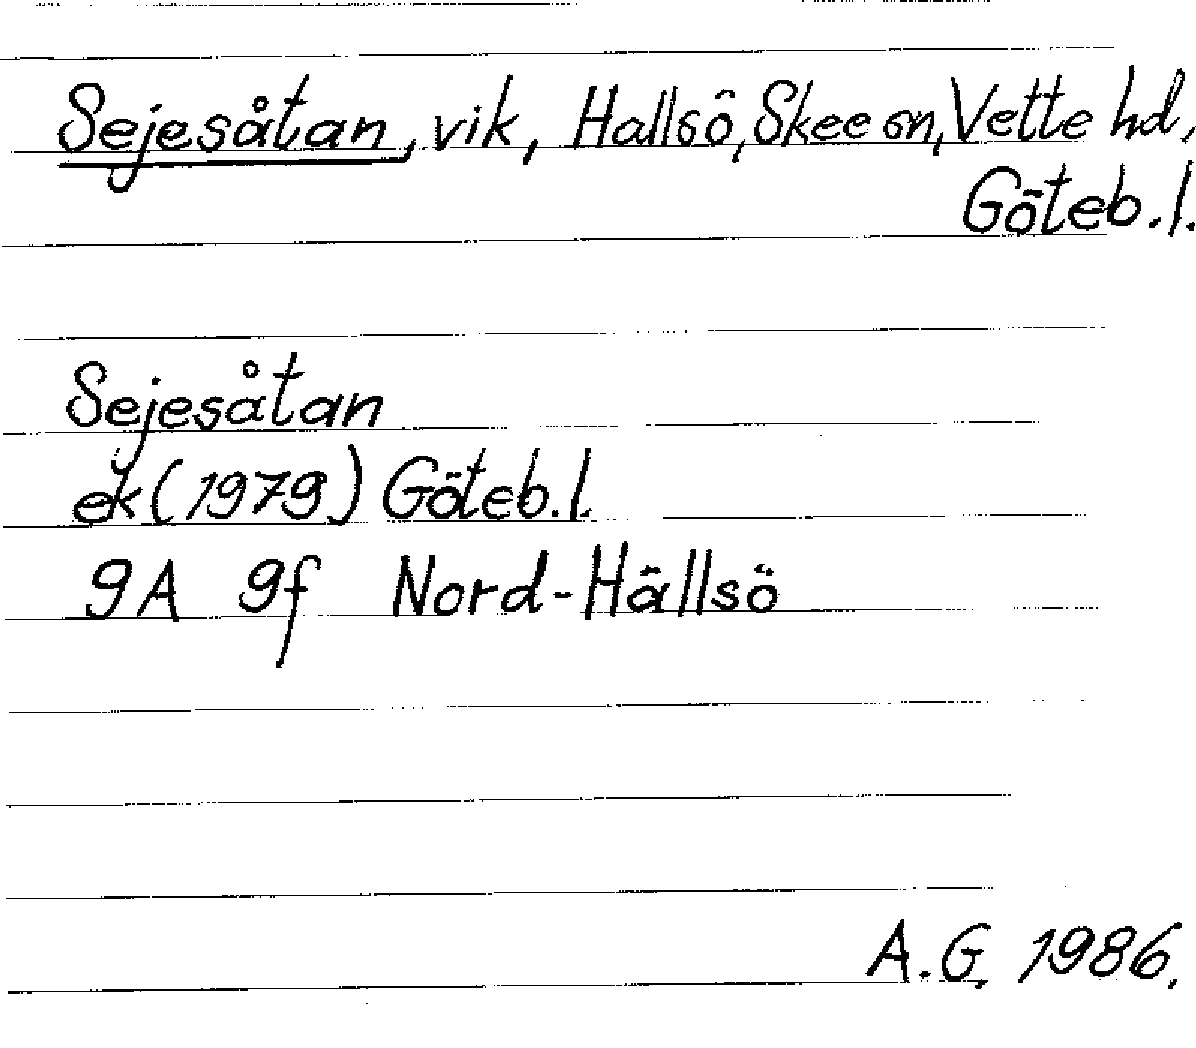 Sejesåtan, vik, Hallsö, Skee sn, Vette hd,
Göteb. l.
Sejesåtan
ek (1979) Göteb. l.
9A 9f Nord-Hällsö
A.G. 1986.